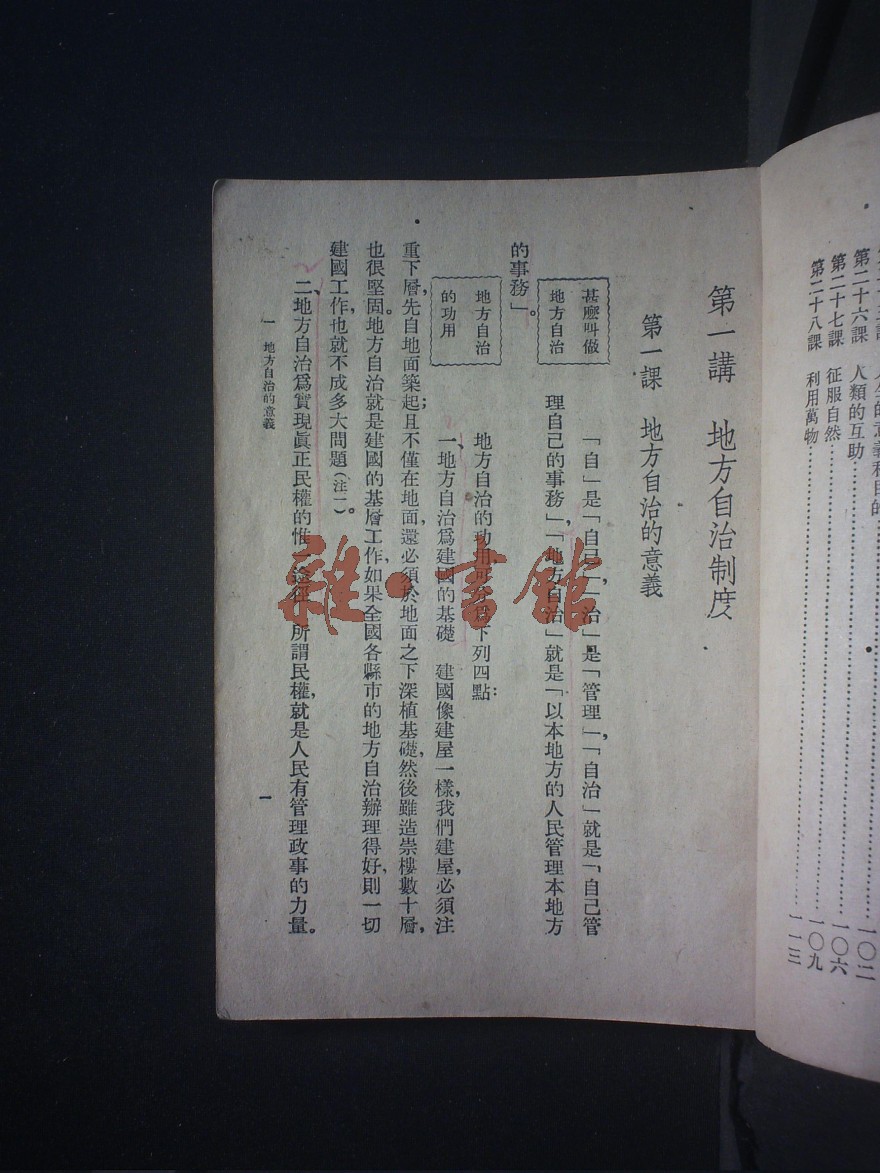 第二十六課　人類的互助………一〇二
第二十七課　征服自然………一〇六
第二十八課　利用萬物………一〇九
一一三
第一講　地方自治制度
第一課　地方自治的意義
甚麼叫做
地方自治
「自」是「自己」，「治」是「管理」，「自治」就是「自己管
理自己的事務」，「地方自治」就是「以本地方的人民管理本地方
的事務」。
地方自治
的功用
地方自治的功用可分爲下列四點：
一、地方自治爲建國的基礎　建國像建屋一樣，我們建屋，必須注
重下層，先自地面築起；且不僅在地面，還必須於地面之下深植基礎，然後雖造崇樓數十層，
也很堅固。地方自治就是建國的基層工作，如果全國各縣市的地方自治辦理得好，則一切
建國工作，也就不成多大問題（注一）。
二、地方自治爲實現眞正民權的惟一途徑　所謂民權，就是人民有管理政事的力量。
一　地方自治的意義
一
雜·書館